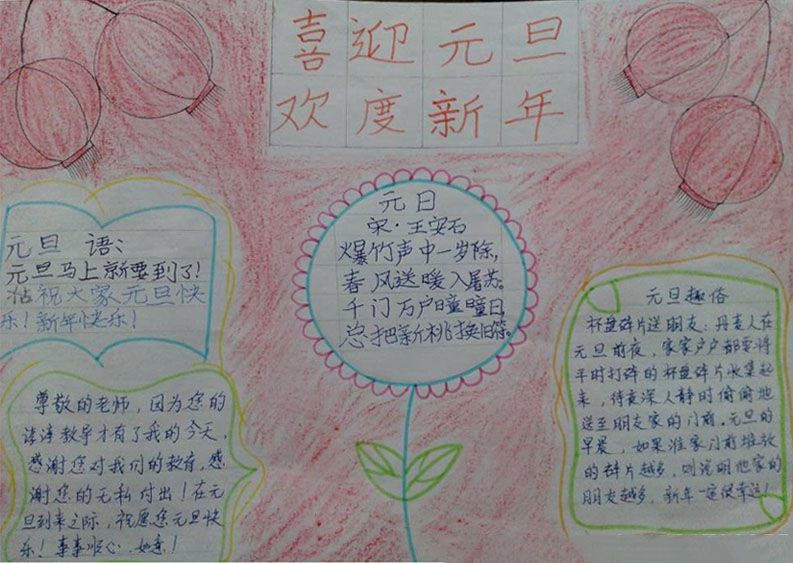 喜迎元旦
欢度新年
元旦 语:
元旦马上就要到了!
祝大家元旦快
乐!新年快乐!
元日
宋·王安石
爆竹声中一岁除,
春风送暖入屠苏。
千门万户曈曈日,
总把新桃换旧符。
元旦趣俗
杯盘碎片送朋友:丹麦人在
元旦前夜,家家户户都要将
平时打碎的杯盘碎片收集起
来,待夜深人静时偷偷地
送至朋友家的门前。元旦的
早晨,如果谁家门前堆放
的碎片越多,则说明他家的
朋友越多,新年一定很幸运!
尊敬的老师,因为您的
谆谆教导才有了我的今天,
感谢您对我们的教育,感
谢您的无私付出!在元
旦到来之际,祝愿您元旦快
乐!事事顺心,如意!